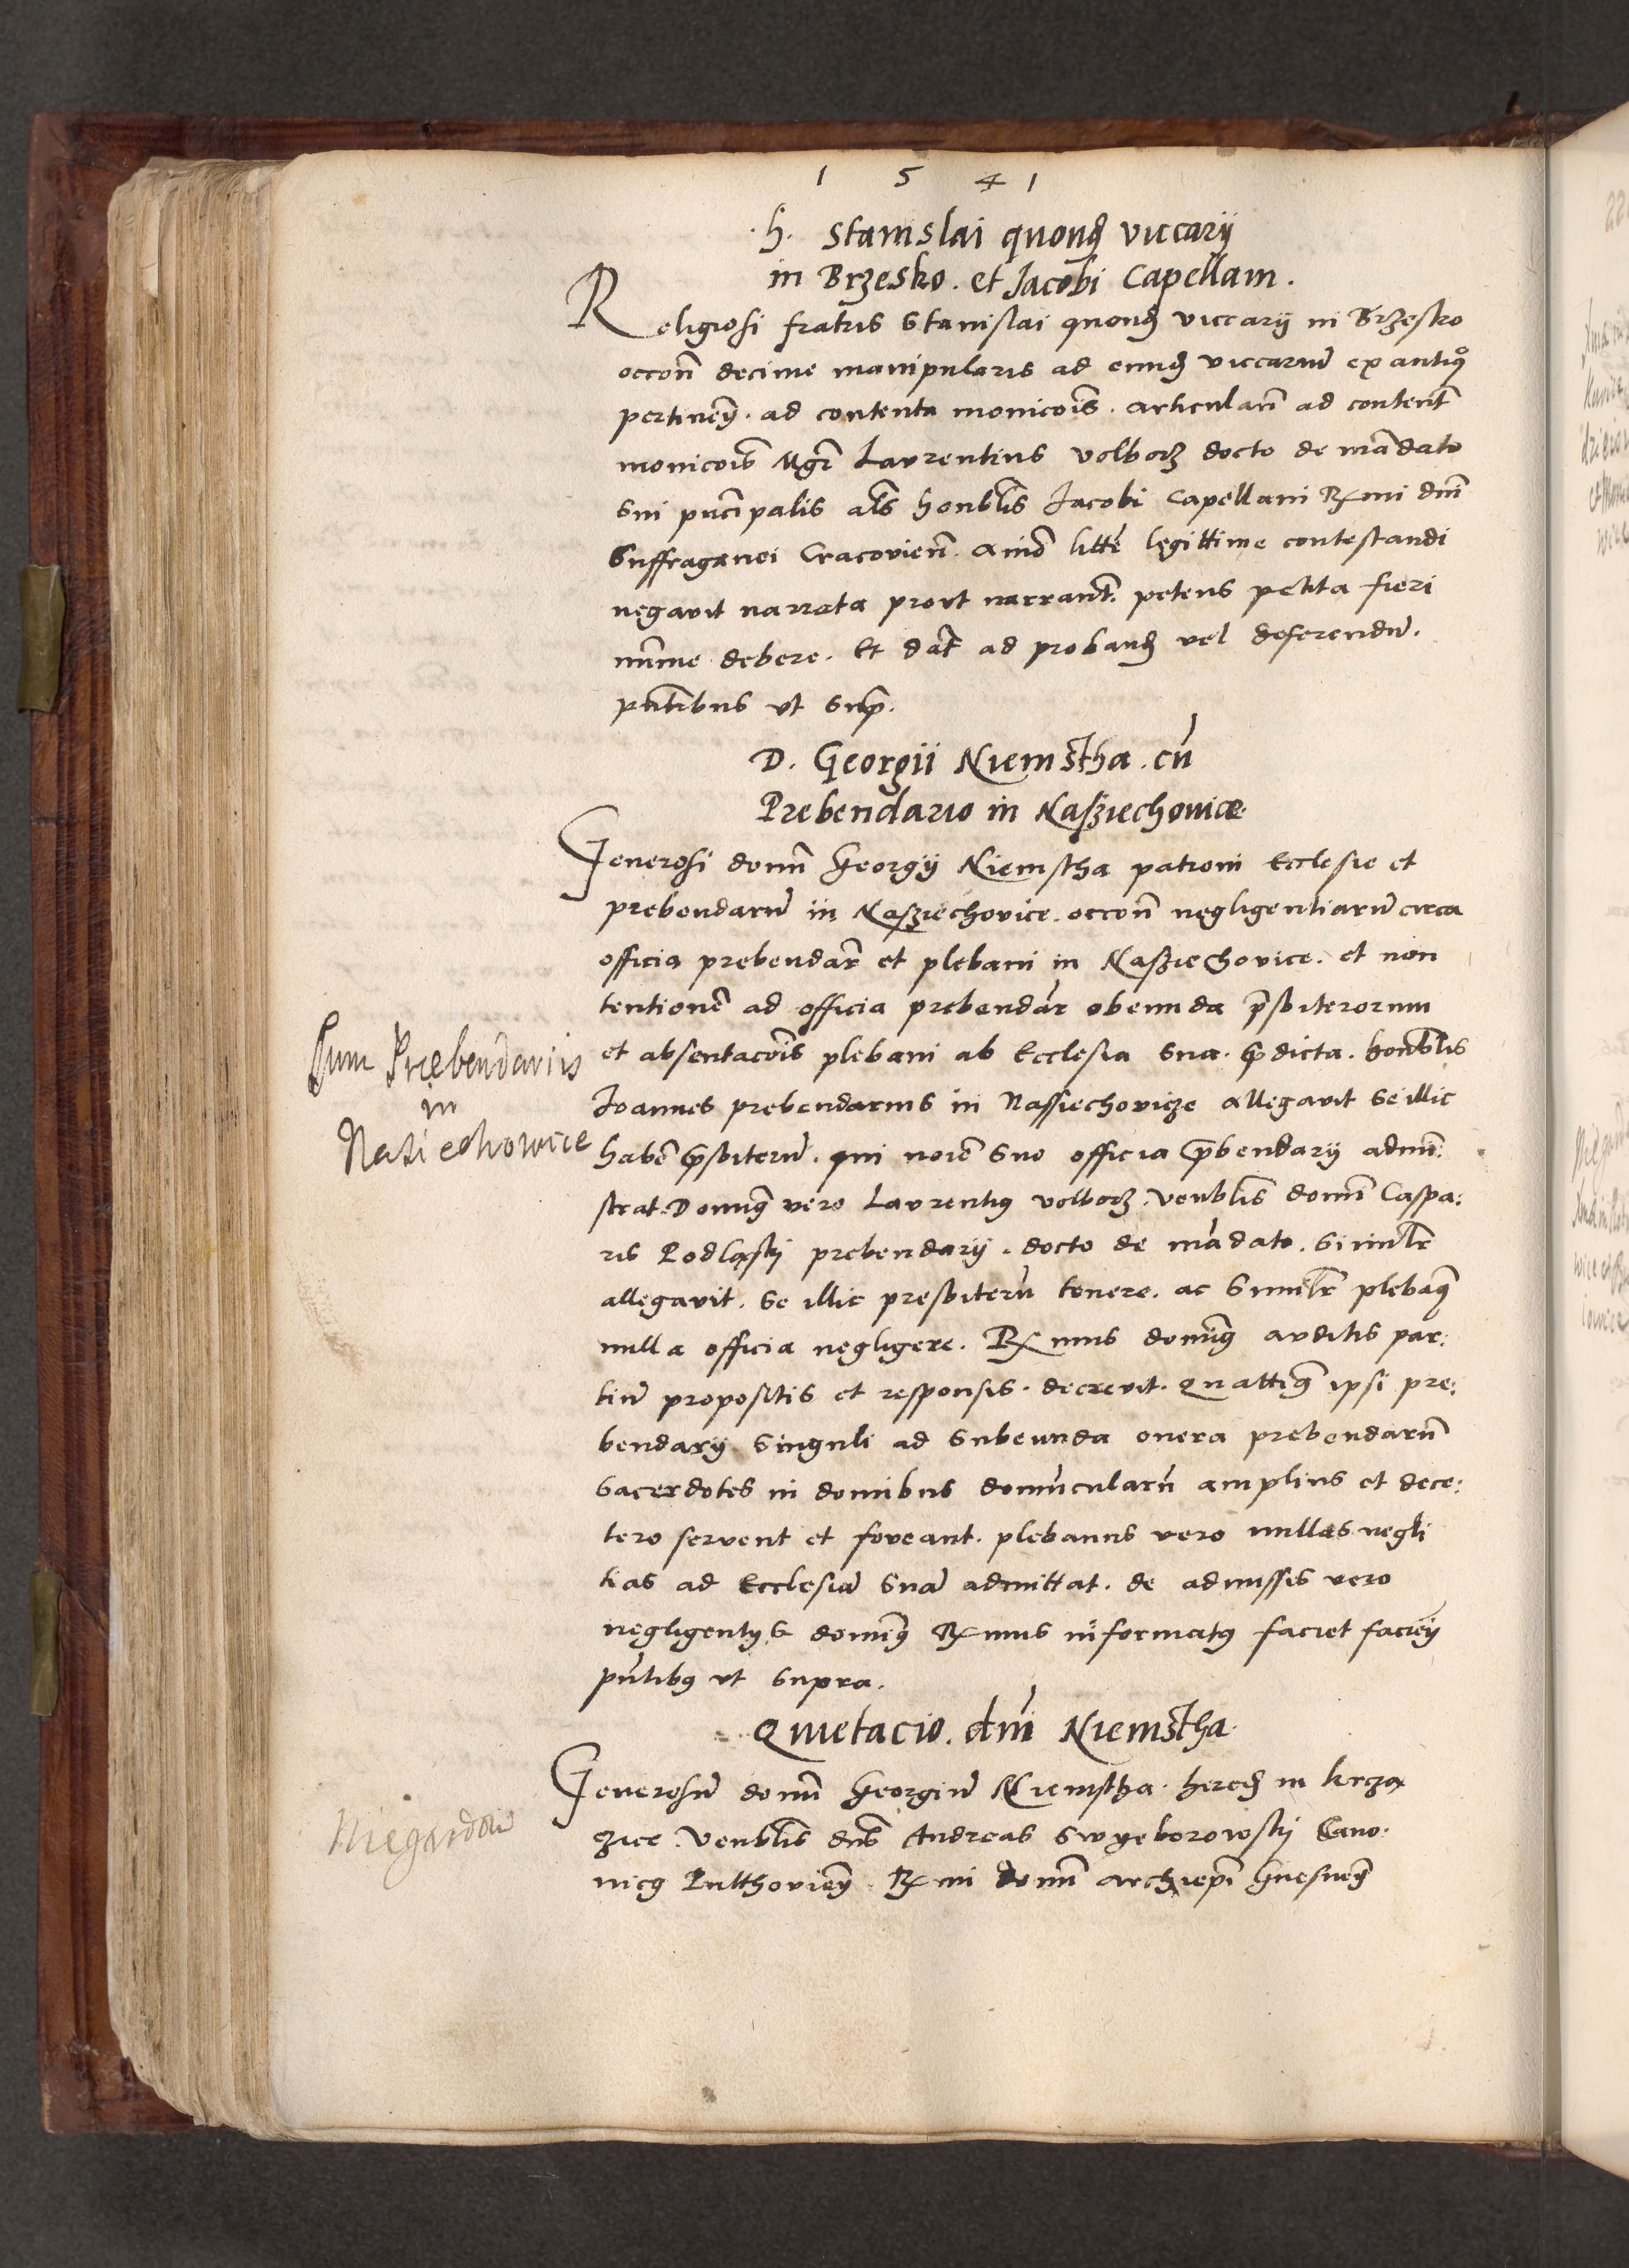 1 5 4 1
h. Stanislai quond viccarij
in Brzesko. et Jacobi Capellani.
Religiosi fratris Stanislai quond viccarij in Brzesko
occon decime manipularis ad eund viccariu ex antiquo
pertineñ. ad contenta monicois. articulari ad content
monicois Mgr Laurentius volborz docto de mandato
sui principalis als honblis Jacobi Capellani Rmi dni
Suffraganei Cracovien. animo litte legittime contestandi
negavit narrata prout narrant. petens petita fieri
minime debere. Et dat ad proband vel deferendu.
pntibus ut supra.
D. Georgii Niemstha. cu
Prebendario in Nasziechovice
Generosi domi Georgij Niemstha patroni Ecclesie et
prebendaru in Nasziechovice. occon negligentiaru circa
officia prebendar et plebani in Nasziechovice. et non
tentione ad officia prebendar obeunda presbiterorum
et absentacois plebani ab Ecclesia sua predicta. honblis
Cum Præbendariis
in
Nasiechowice
Joannes prebendarius in Nassiechovicze allegavit se illic
habe presbiteru. qui noie suo officia prebendarij admi:
strat. Dominus vero Laurentius volborz. venblis domi Caspa:
ris Podlaski prebendarij. docto de mandato. similr
allegavit. se illic presbiteru tenere. ac similr plebanus
nulla officia negligere. Rmus dominus auditis par:
tiu propositis et responsis. decrevit. quattinus ipsi pre:
bendarij singuli ad subeunda onera prebendaru
sacerdotes in domibus domuncularu amplius et dece:
tero servent et foveant. plebanus vero nullas negli
tias ad Ecclesia sua admittat. de admissis vero
negligentijs dominus Rmus informatus faciet facien
pntibus ut supra.
Quietacio. dni Niemstha
Generosu domi Georgiu Niemstha. hered in krcza
czice. Venblis dns Andreas Swyeborowskij Cano:
nicus Pulthovien. Rmi domi archiepi Gnesnen
Niegardow